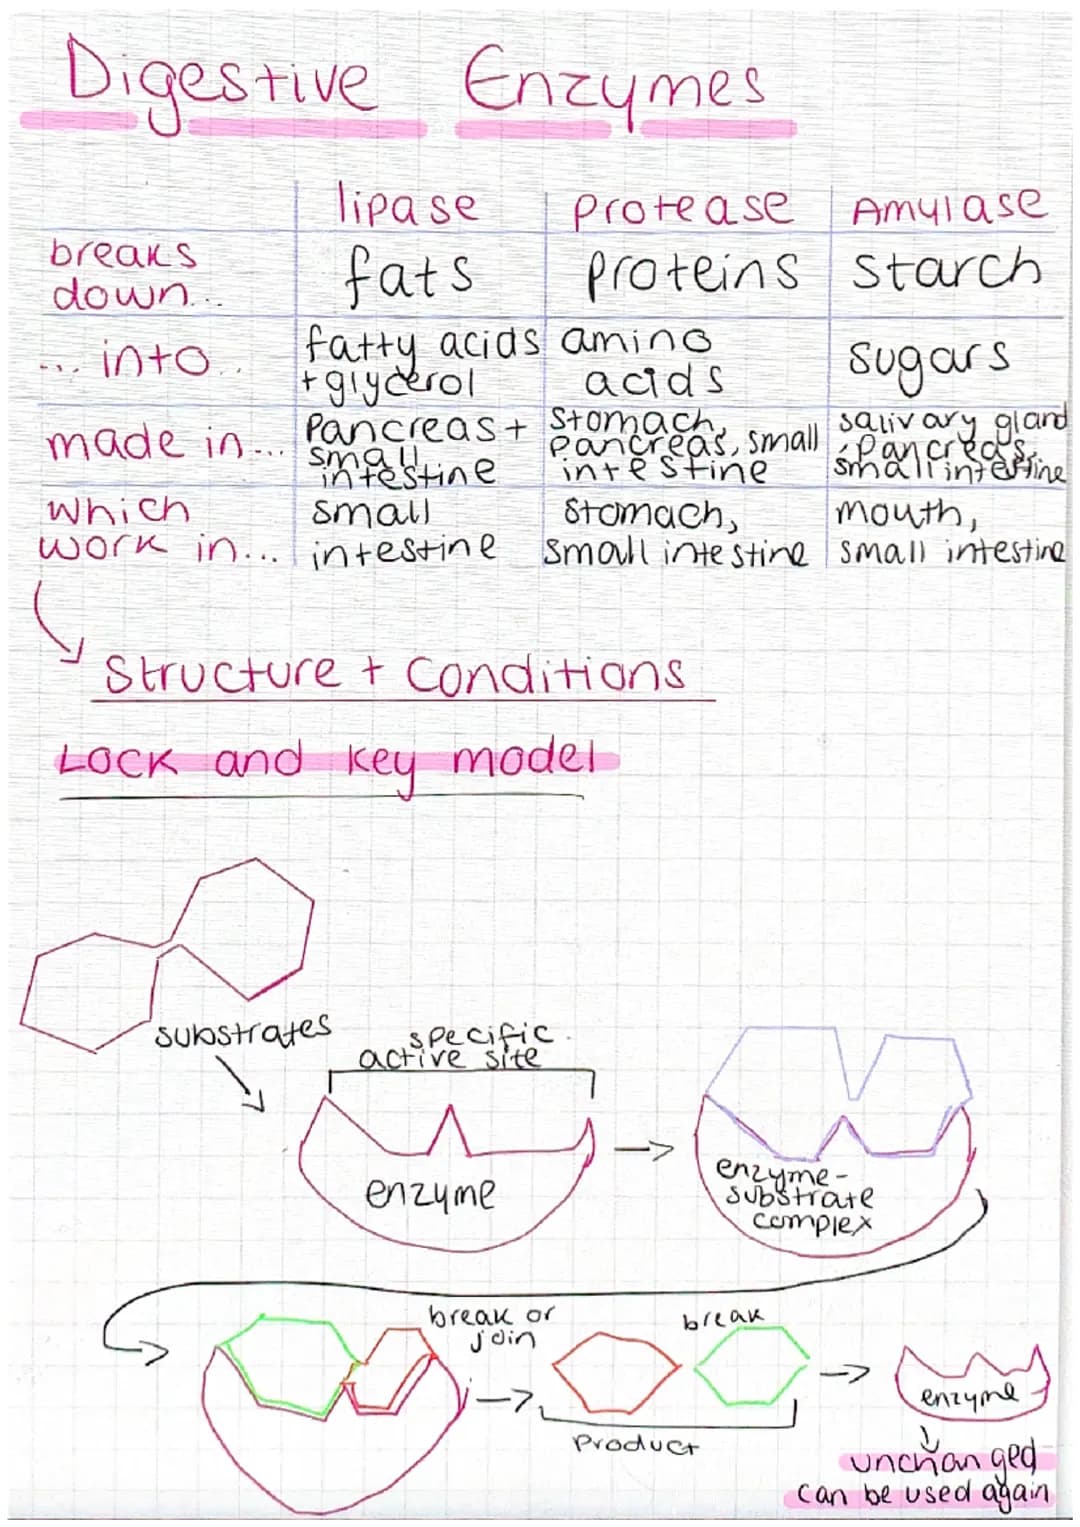 Digestive Enzymes
lipase protease Amylase
breaks down... fats proteins starch
... into... fatty acids + glycerol amino acids sugars
made in... Pancreas + small intestine Stomach, pancreas, small intestine salivary gland, pancreas, small intestine
which work in... small intestine Stomach, small intestine mouth, small intestine
Structure + Conditions
Lock and key model
substrates
specific active site
enzyme
enzyme-
substrate
complex
break or
join
break
product
enzyme
unchanged
can be used again